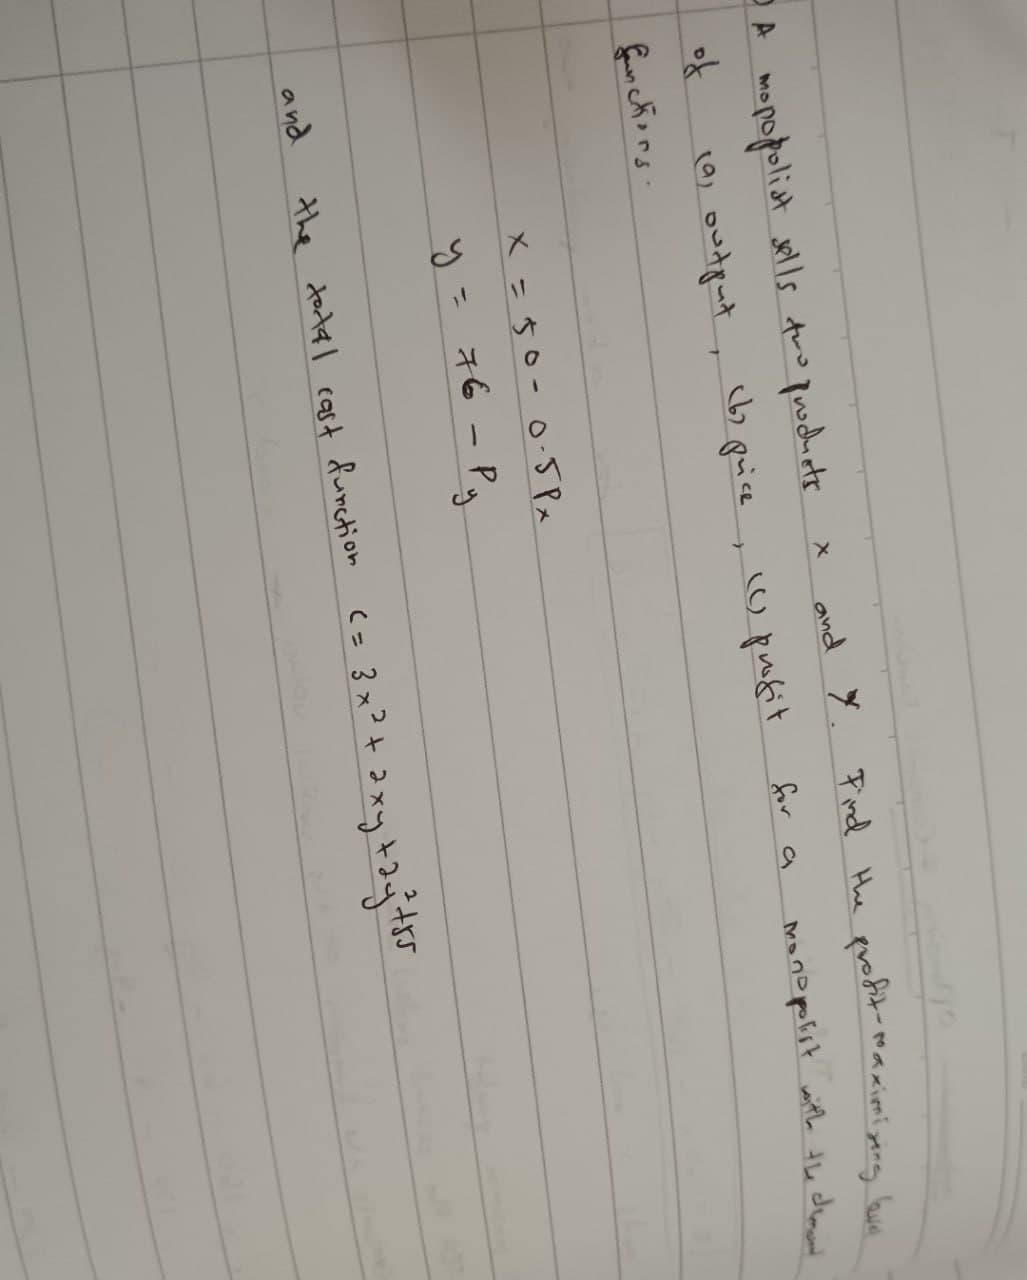 A mopopolist sells two products x and y. Find the profit-maximizing level
of (a) output, (b) price, (c) profit for a monopolist with the demand
functions.
x = 50 - 0.5Px
y = 76 - Py
and the total cost function c = 3x² + 2xy + 2y² + 55